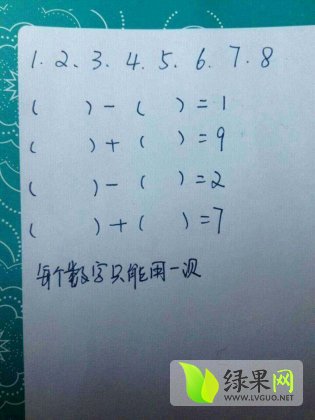 1.2、3.4.5.6.7.8
(   )-(   )=1
(   )+(   )=9
(   )-(   )=2
(   )+(   )=7
每个数字只能用一次
绿果网
WWW.LVGUO.NET